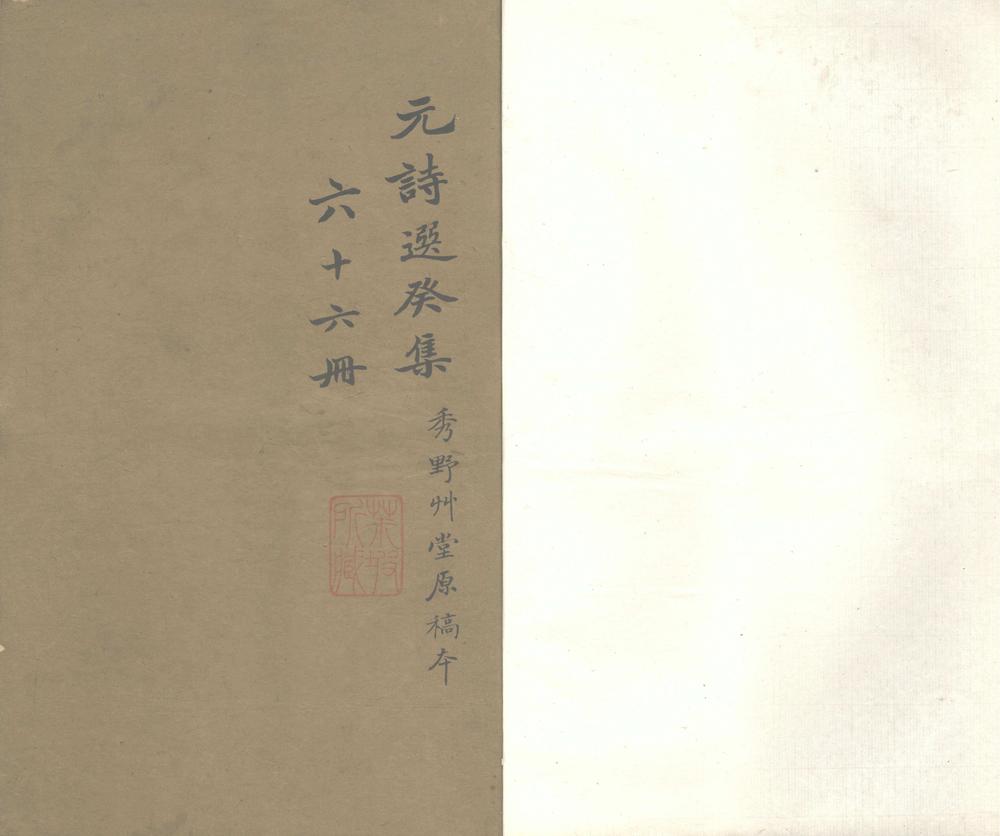 元詩選癸集 秀野艸堂原稿本
六十六冊